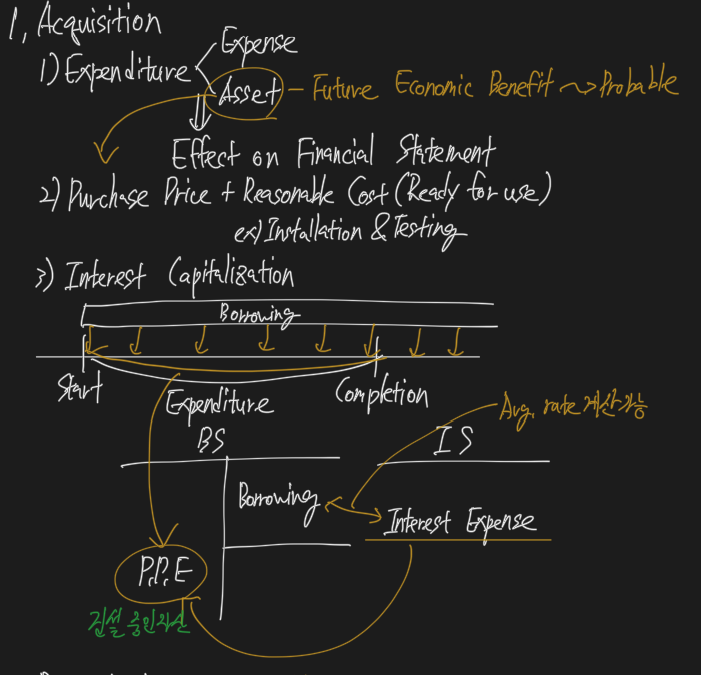 1. Acquisition
1) Expenditure
Expense
Asset - Future Economic Benefit ~> Probable
Effect on Financial Statement
2) Purchase Price + Reasonable Cost (Ready for use)
ex) Installation & Testing
3) Interest Capitalization
Borrowing
Start
Expenditure
Completion
Avg. rate 계산가능
BS
IS
Borrowing
Interest Expense
P.P.E
건설중인자산